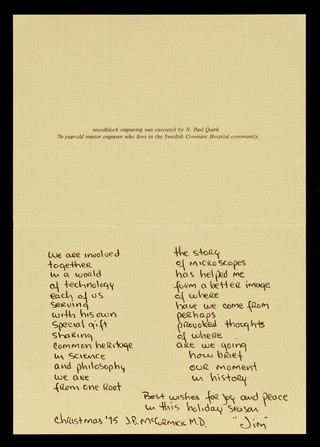 woodblock engraving was executed by N. Paul Quirk
76 year-old master engraver who lives in the Swedish Covenant Hospital community.
we are involved
together
in a world
of technology
each of us
serving
with his own
special gift
sharing
common heritage
in science
and philosophy
we are
from one root
the story
of microscopes
has helped me
form a better image
of where
have we come from
perhaps
provoked thoughts
of where
are we going
how brief
our moment
in history
Best wishes for joy and peace
in this holiday season
Christmas '75 J.B. McCormick M.D. "Jim"